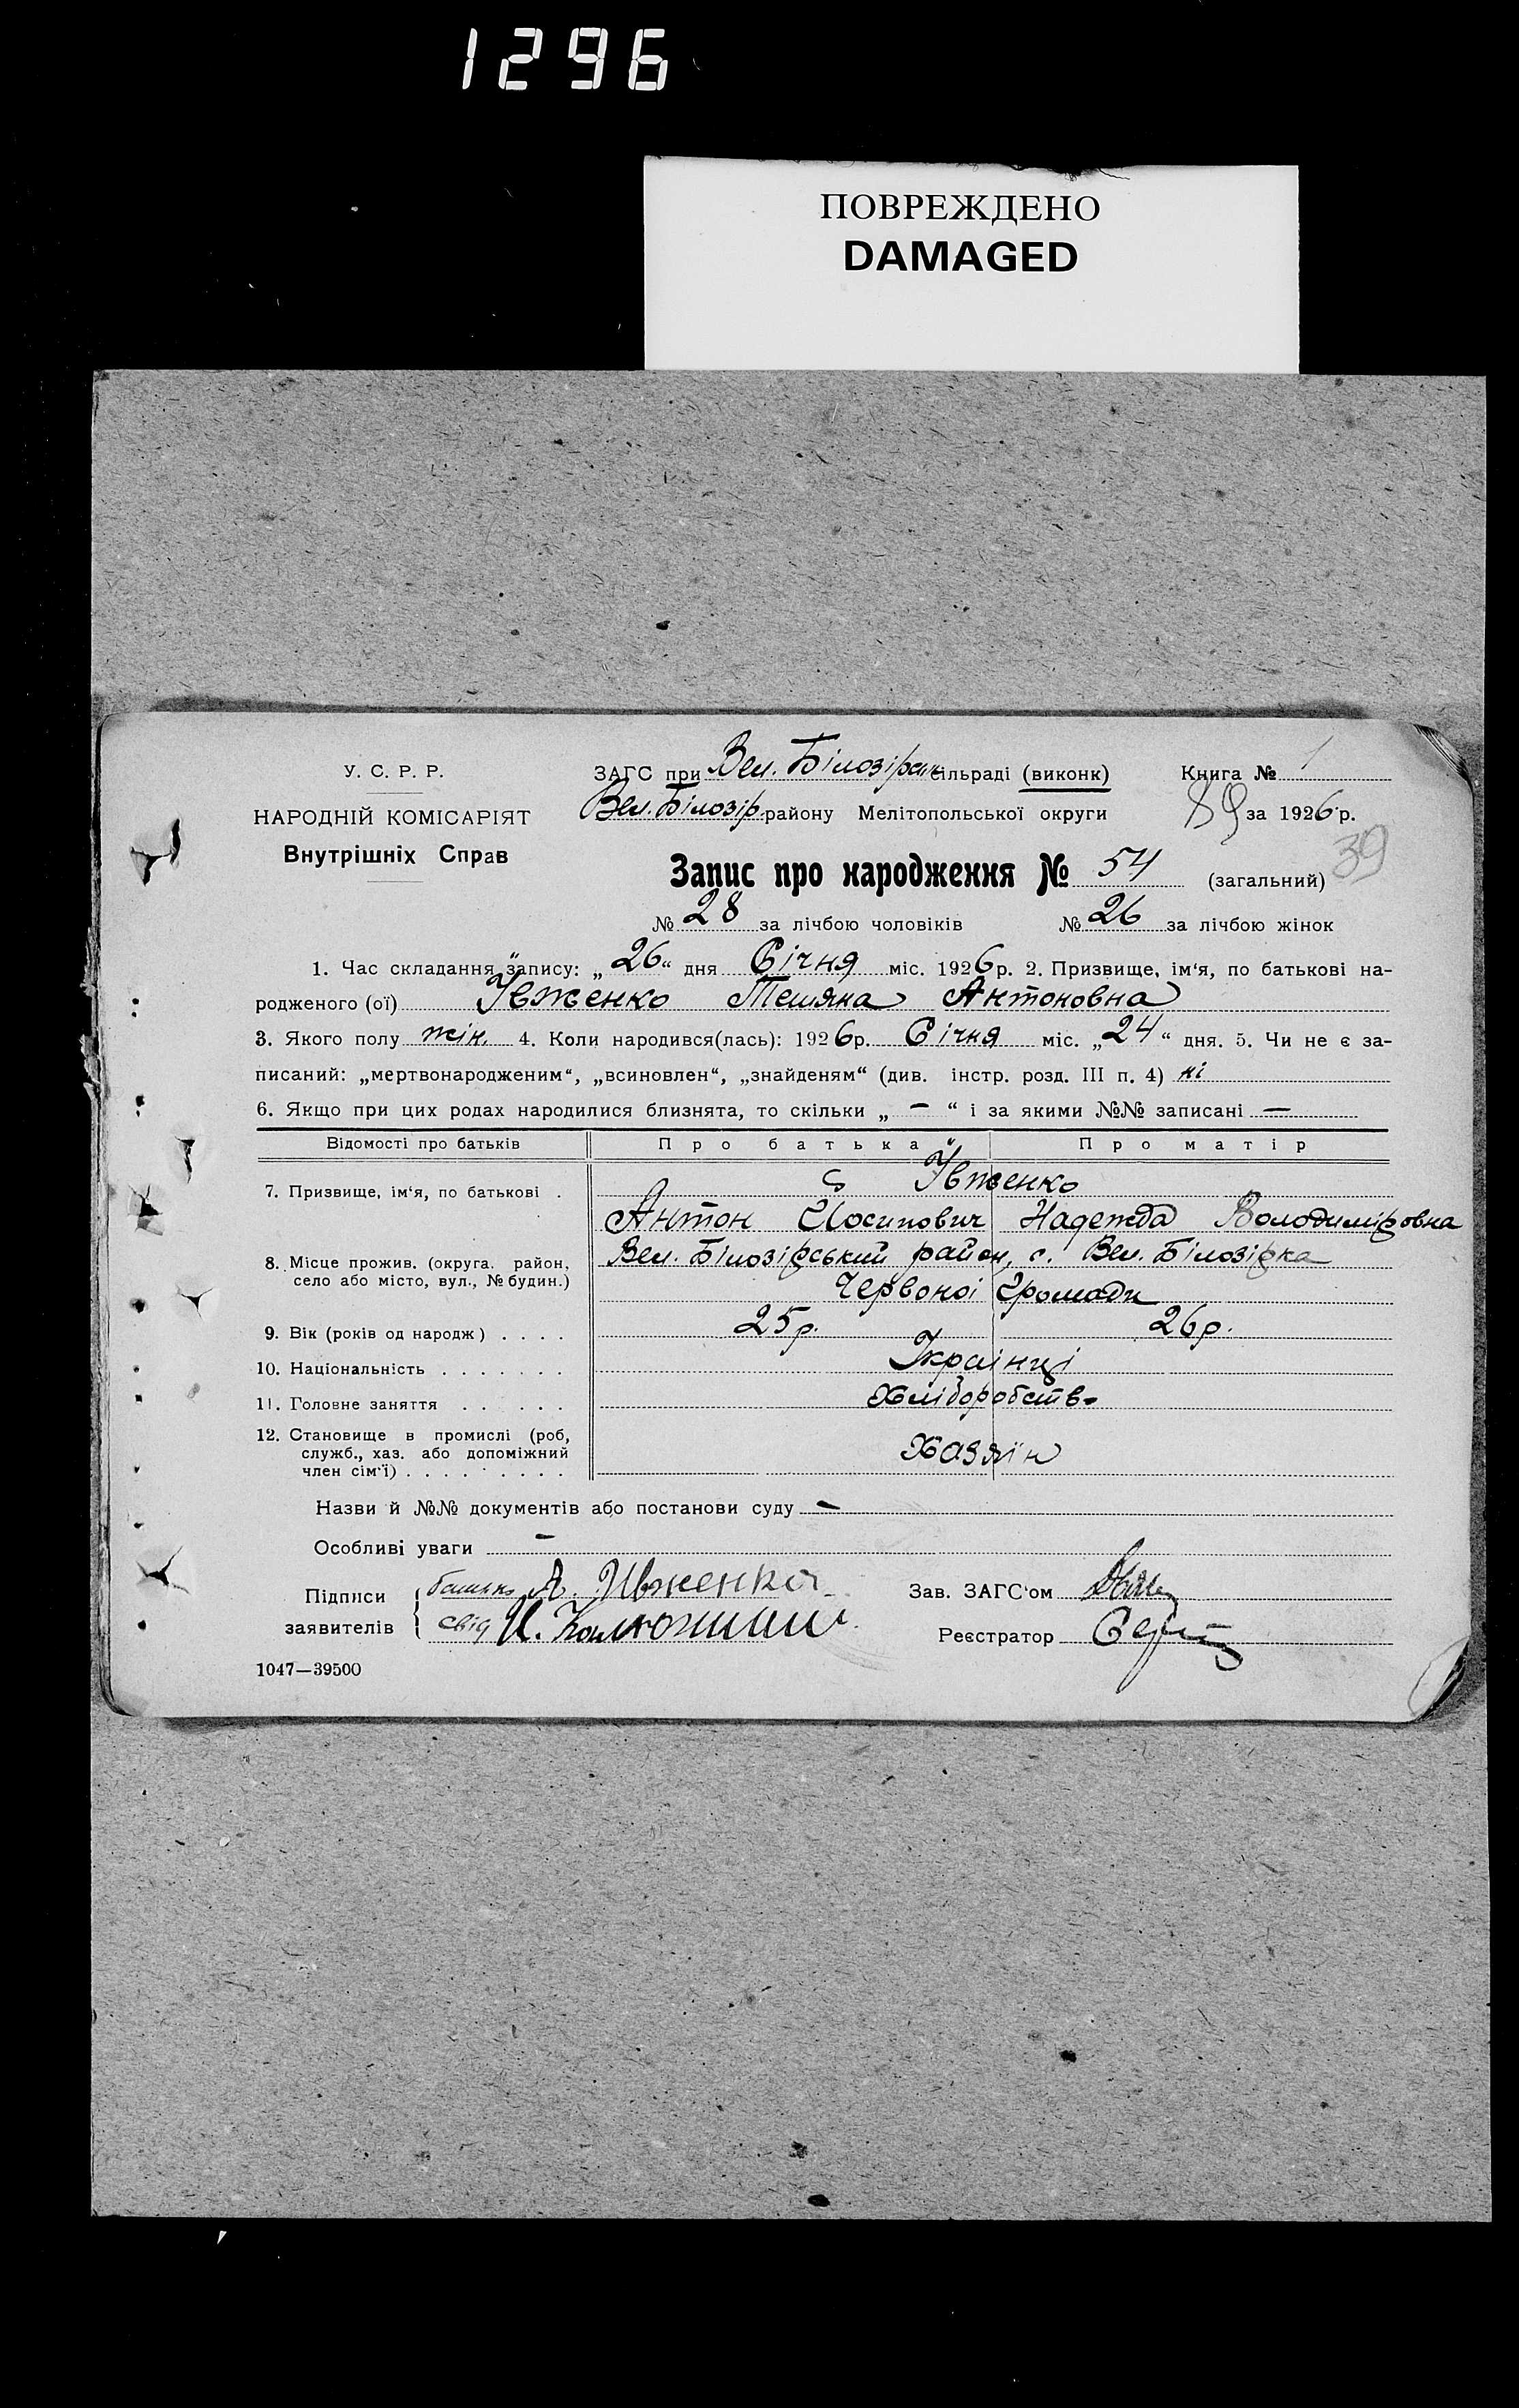 1296
ПОВРЕЖДЕНО
DAMAGED
У. С. Р. Р.
НАРОДНІЙ КОМІСАРІЯТ
Внутрішніх Справ
ЗАГС при Вел. Білозірськ. сільраді (виконк)
Вел. Білозір. району Мелітопольської округи
Книга № 1
89 за 1926 р.
39
Запис про народження № 54 (загальний)
№ 28 за лічбою чоловіків № 26 за лічбою жінок
1. Час складання запису: „26“ дня Січня міс. 1926 р. 2. Призвище, ім‘я, по батькові на-
родженого (ої) Ївженко Тетяна Антоновна
3. Якого полу жін. 4. Коли народився(лась): 1926 р. Січня міс. „24“ дня. 5. Чи не є за-
писаний: „мертвонародженим“, „всиновлен“, „знайденям“ (див. інстр. розд. III п. 4) ні
6. Якщо при цих родах народилися близнята, то скільки „ — “ і за якими №№ записані —
Відомості про батьків Про батька Про матір
7. Призвище, ім‘я, по батькові . Ївженко
Антон Йосипович Надежда Володиміровна
8. Місце прожив. (округа. район, Вел. Білозірський район, с. Вел. Білозірка
село або місто, вул., № будин.)
Червоної Громади
9. Вік (років од народж) . . . . 25 р. 26 р.
10. Національність . . . . . . . Українці
11. Головне заняття . . . . . . Хліборобство
12. Становище в промислі (роб,
служб., хаз. або допоміжний Хазяїн
член сім‘ї) . . . . . . . . .
Назви й №№ документів або постанови суду —
Особливі уваги —
Підписи батько А. Ивженко Зав. ЗАГС‘ом
заявителів свід И. Реєстратор
1047—39500